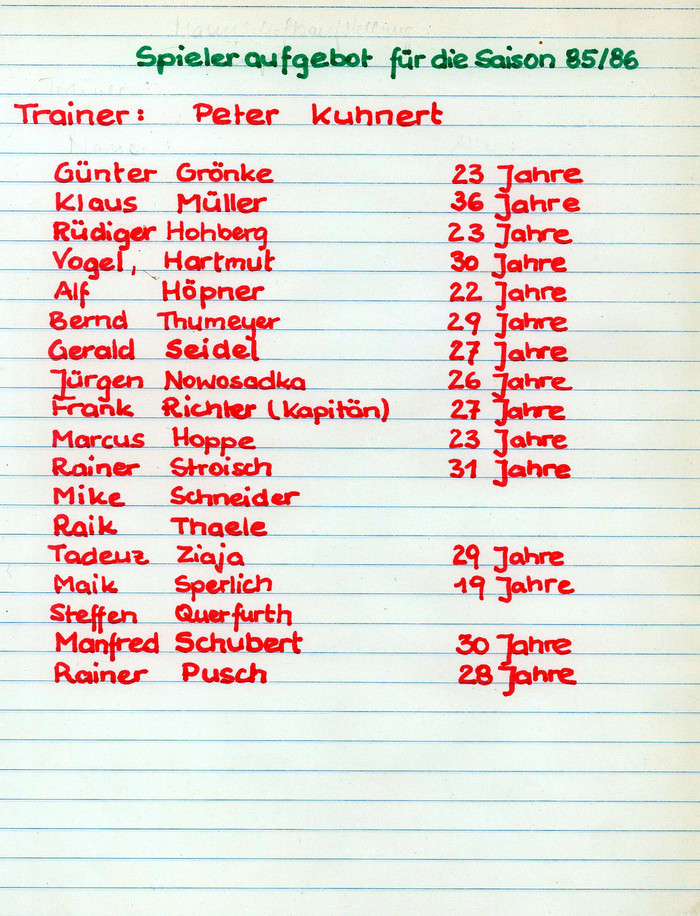 Spieleraufgebot für die Saison 85/86
Trainer: Peter Kuhnert
Günter Grönke 23 Jahre
Klaus Müller 36 Jahre
Rüdiger Hohberg 23 Jahre
Vogel, Hartmut 30 Jahre
Alf Höpner 22 Jahre
Bernd Thumeyer 29 Jahre
Gerald Seidel 27 Jahre
Jürgen Nowosadka 26 Jahre
Frank Richter (Kapitän) 27 Jahre
Marcus Hoppe 23 Jahre
Rainer Stroisch 31 Jahre
Mike Schneider
Raik Thaele
Tadeuz Ziaja 29 Jahre
Maik Sperlich 19 Jahre
Steffen Querfurth
Manfred Schubert 30 Jahre
Rainer Pusch 28 Jahre